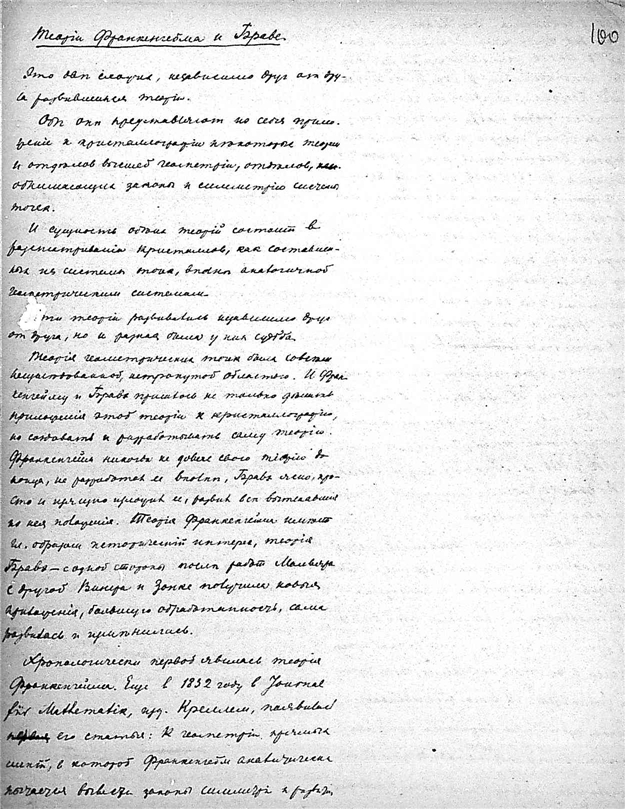 100
Теорiи Франкенгейма и Браве.
Это двѣ сходныя, независимо другъ отъ дру-
га развившiяся теорiи.
Обѣ онѣ представляютъ изъ себя прило-
женiе къ кристаллографiи нѣкоторыхъ теорiй
и отдѣловъ высшей геометрiи, отдѣловъ,
обнимающихъ законы и симметрiю системъ
точекъ.
И сущность обѣихъ теорiй состоитъ въ
разсматриванiи кристалловъ, какъ составлен-
ныхъ изъ системъ точекъ, вполнѣ аналогичной
геометрическимъ системамъ.
Эти теорiи развивались независимо другъ
отъ друга, но и разная была у нихъ судьба.
Теорiя геометрическихъ точекъ была совсѣмъ
несуществовавшей, нетронутой областью. И Фран-
кенгейму и Браве пришлось не только
приложенiя этой теорiи къ кристаллографiи,
но создавать и разрабатывать самую теорiю.
Франкенгеймъ никогда не довелъ свою теорiю до
конца, не разработалъ ее вполнѣ, Браве ясно, про-
сто и изящно изложилъ ее, развилъ всѣ вытекавшiя
изъ нея положенiя. Теорiя Франкенгейма имѣетъ
гл. образомъ историческiй интересъ, теорiя
Браве — съ одной стороны послѣ работъ Малльяра
съ другой Винера и Зонке получила новыя
приложенiя, большую обработанность, сама
развилась и измѣнилась.
Хронологически первой явилась теорiя
Франкенгейма. Еще въ 1832 году въ Journal
für Mathematik, изд. Креллемъ, появилась
его статья: Къ геометрiи
въ которой Франкенгеймъ аналитически
пытается вывести законы симметрiи и